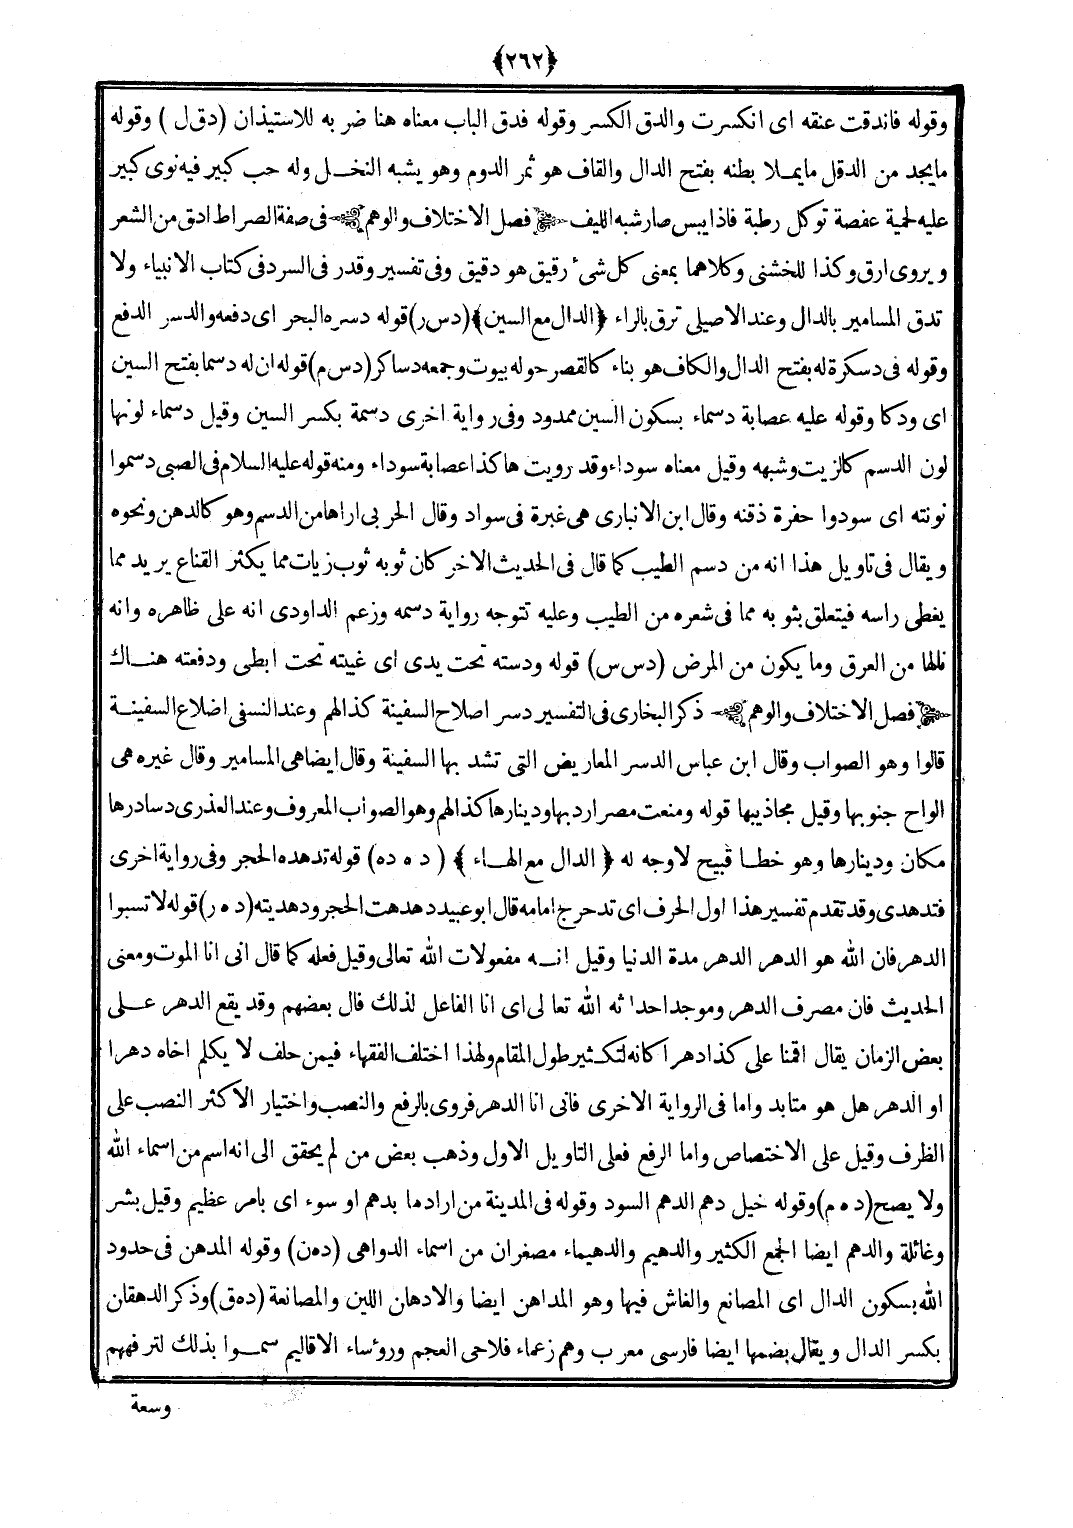 ﴿٢٦٢﴾
وقوله فاندقت عنقه اى انكسرت والدق الكسر وقوله فدق الباب معناه هنا ضربه للاستيذان (دق ل) وقوله
مايجد من الدقل مايملا بطنه بفتح الدال والقاف هو ثمر الدوم وهو يشبه النخل وله حب كبير فيه نوى كبير
عليه لحمية عفصة توكل رطبة فاذا يبس صار شبه الليف فصل الاختلاف والوهم فى صفة الصراط ادق من الشعر
ويروى ارق وكذا للخشنى وكلاهما بمعنى كل شئ رقيق هو دقيق وفى تفسير وقدر فى السرد فى كتاب الانبياء ولا
تدق المسامير بالدال وعند الاصيلى ترق بالراء ﴿الدال مع السين﴾ (دس ر) قوله دسره البحر اى دفعه والدسر الدفع
وقوله فى دسكرة له بفتح الدال والكاف هو بناء كالقصر حوله بيوت وجمعه دساكر (دس م) قوله ان له دسما بفتح السين
اى ودكا وقوله عليه عصابة دسماء بسكون السين ممدود وفى رواية اخرى دسمة بكسر السين وقيل دسماء لونها
لون الدسم كالزيت وشبهه وقيل معناه سوداء وقد رويت هاكذا عصابة سوداء ومنه قوله عليه السلام فى الصبى دسموا
نونته اى سودوا حفرة ذقنه وقال ابن الانبارى هى غبرة فى سواد وقال الحربى اراها من الدسم وهو كالدهن ونحوه
ويقال فى تاويل هذا انه من دسم الطيب كما قال فى الحديث الاخر كان ثوبه ثوب زيات مما يكثر القناع يريد مما
يغطى راسه فيتعلق بثوبه مما فى شعره من الطيب وعليه تتوجه رواية دسمه وزعم الداودى انه على ظاهره وانه
نالها من العرق وما يكون من المرض (دس س) قوله ودسته تحت يدى اى غيبته تحت ابطى ودفعته هناك
فصل الاختلاف والوهم ذكر البخارى فى التفسير دسر اصلاح السفينة كذا لهم وعند النسفى اضلاع السفينة
قالوا وهو الصواب وقال ابن عباس الدسر المعاريض التى تشد بها السفينة وقال ايضا هى المسامير وقال غيره هى
الواح جنوبها وقيل مجاذيبها قوله ومنعت مصر اردبها ودينارها كذا لهم وهو الصواب المعروف وعند العذرى دسادرها
مكان ودينارها وهو خطا قبيح لا وجه له ﴿الدال مع الهاء﴾ (ده ده) قوله تدهده الحجر وفى رواية اخرى
فتدهدى وقد تقدم تفسير هذا اول الحرف اى تدحرج امامه قال ابو عبيد دهدهت الحجر ودهديته (ده ر) قوله لا تسبوا
الدهر فان الله هو الدهر الدهر مدة الدنيا وقيل انه مفعولات الله تعالى وقيل فعله كما قال انى انا الموت ومعنى
الحديث فان مصرف الدهر وموجد احداثه الله تعالى اى انا الفاعل لذلك قال بعضهم وقد يقع الدهر على
بعض الزمان يقال اقمنا على كذا دهرا كانه لتكثير طول المقام ولهذا اختلف الفقهاء فيمن حلف لا يكلم اخاه دهرا
او الدهر هل هو متابد واما فى الرواية الاخرى فانى انا الدهر فروى بالرفع والنصب واختيار الاكثر النصب على
الظرف وقيل على الاختصاص واما الرفع فعلى التاويل الاول وذهب بعض من لم يحقق الى انه اسم من اسماء الله
ولا يصح (ده م) وقوله خيل دهم الدهم السود وقوله فى المدينة من ارادها بدهم او سوء اى بامر عظيم وقيل بشر
وغائلة والدهم ايضا الجمع الكثير والدهيم والدهيماء مصغران من اسماء الدواهى (دهن) وقوله المدهن فى حدود
الله بسكون الدال اى المصانع والغاش فيها وهو المداهن ايضا والادهان اللين والمصانعة (دهق) وذكر الدهقان
بكسر الدال ويقال بضمها ايضا فارسى معرب وهم زعماء فلاحى العجم وروٴساء الاقاليم سموا بذلك لترفههم
وسعة